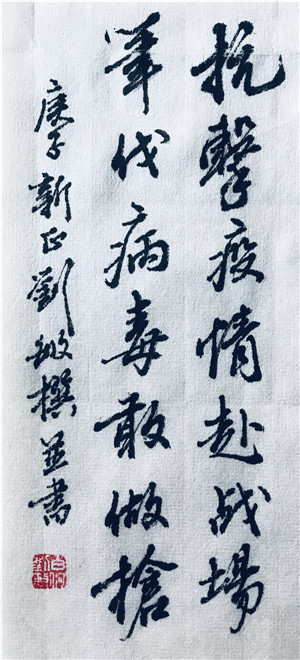 抗擊疫情赴战場
筆伐病毒敢做槍
庚子新正劉敏撰並書